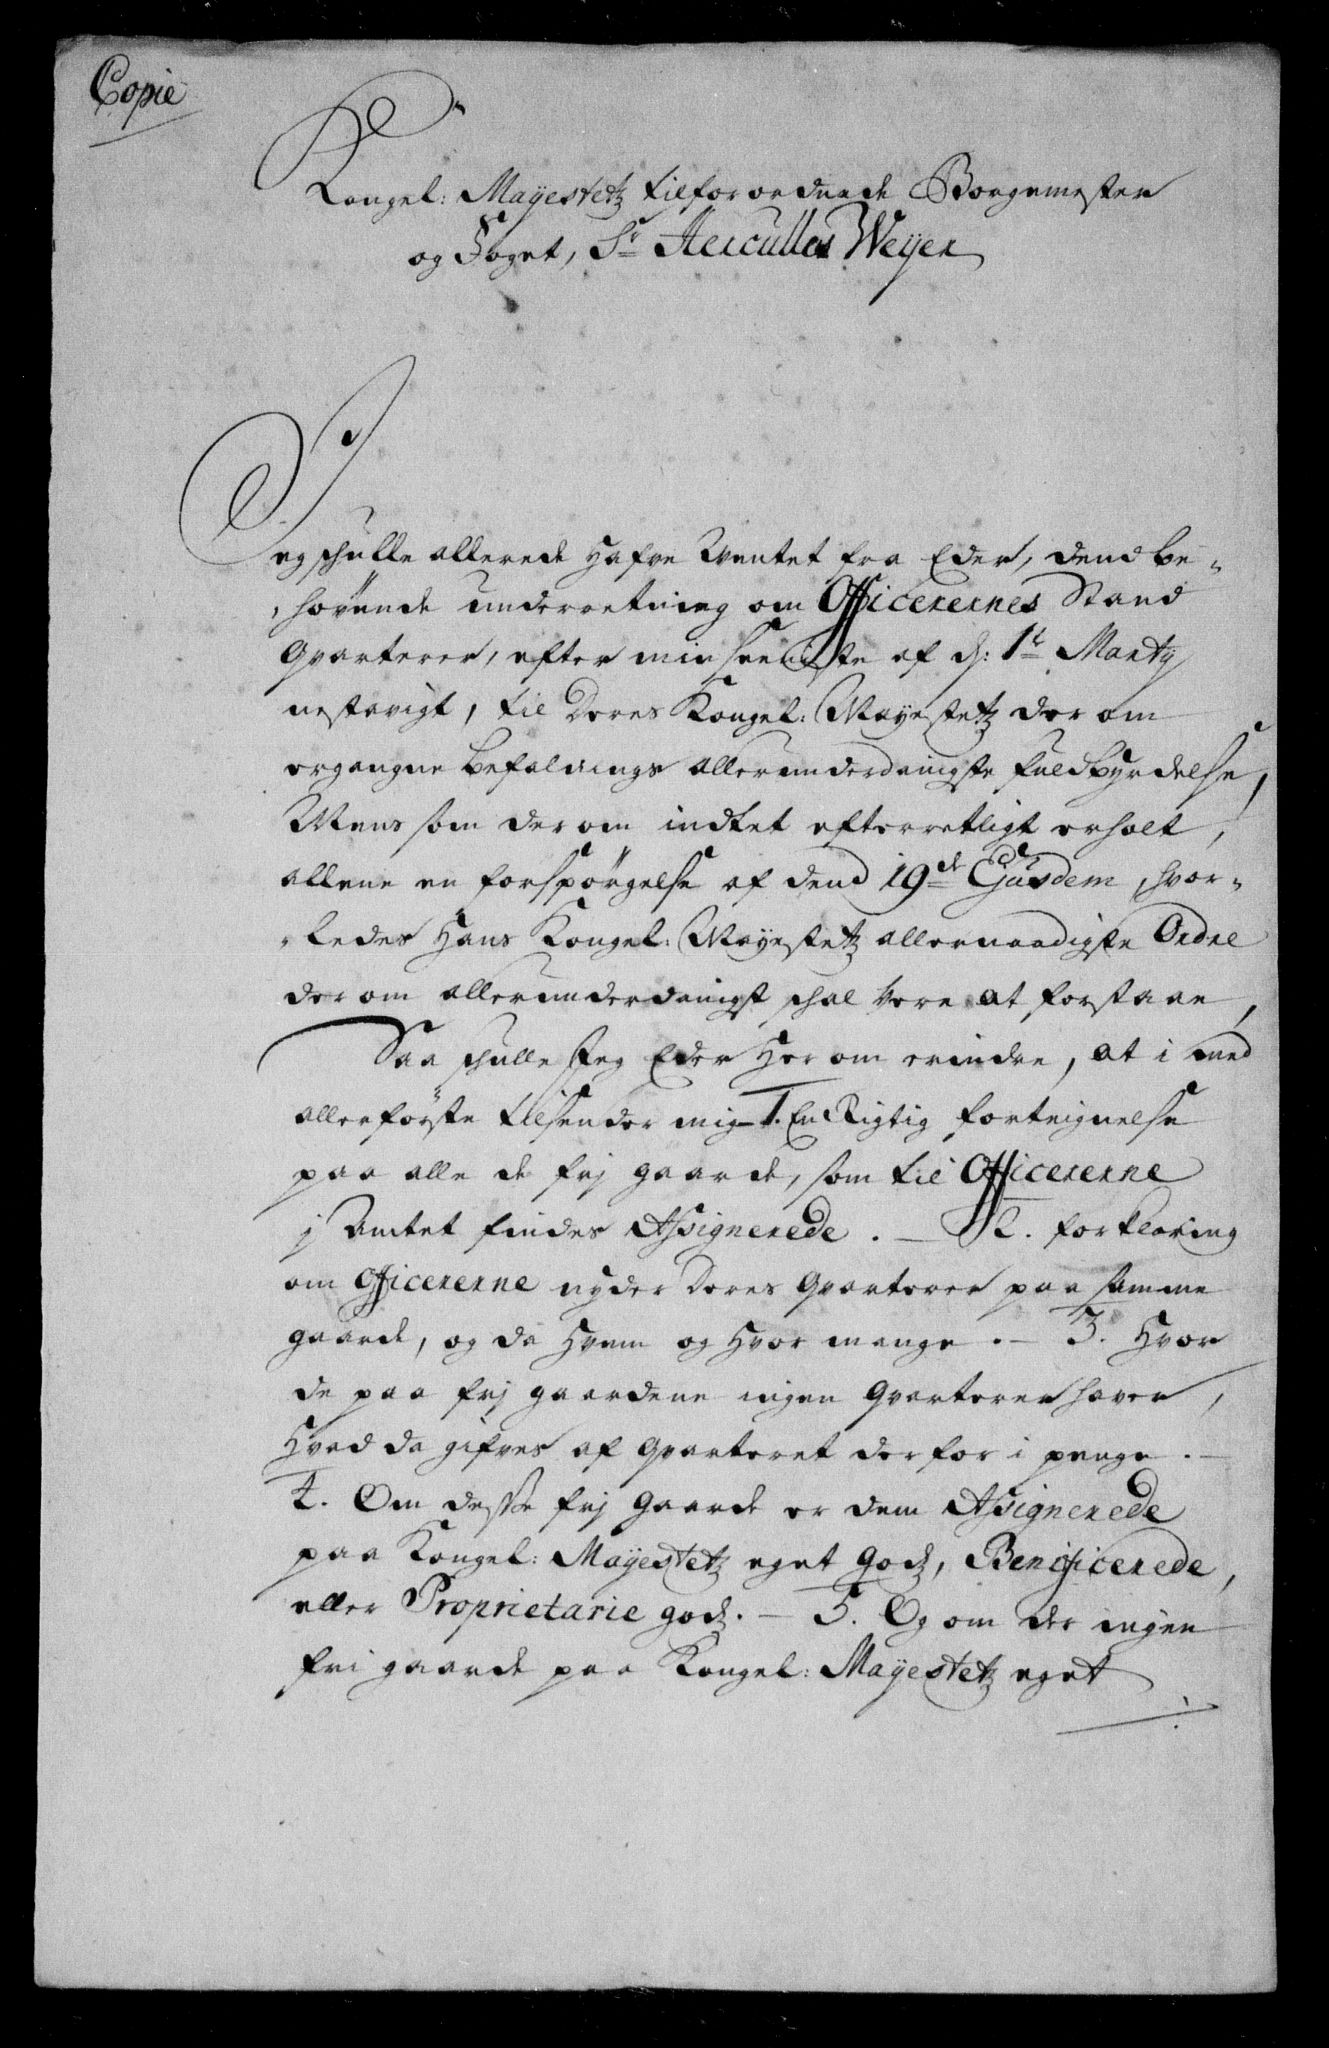 Copie
Kongel: Mayestetz tilforordnede Borgemester
og Foget, Sr Herculles Weyer
Jeg schulle allerede hafve Ventet fra Eder, dend be-
-hörende underretning om Officerernes Stand
Qvarterer, efter min seeniste af d: 1t Marty
nestvigt, til Deres Kongel: Mayestetz der om
ergangne befalnings allerunderdanigste fuldbyrdelse,
Mens som der om indtet efterretligt erholt,
allene en forspörgelse af dend 19de Ejusdem, hvor-
-ledes Hans Kongel: Mayestetz allernaadigste Ordre
der om allerunderdanigst schal Vere at forstaae,
Saa schulle Jeg Eder Her om erindre, at i med
allerförste tilsender mig 1. En Rigtig forteignelse
paa alle de frj gaarde, som til Officererne
j Amtet findes Assignerede. — 2. forklaring
om Officererne nyder Deres Qvarterer paa samme
gaarde, og da Hvem og Hvor mange. — 3. Hvor
de paa frj gaardene ingen Qvarterer haver,
Hvad da gifves af Qvarteret derfor i penge. —
4. Om desse frj Gaarde er dem Assignerede
paa Kongel: Mayestetz eget Godz, Benificerede,
eller Proprietarie godz. — 5. Og om der ingen
fri gaarde paa Kongel: Mayestetz eget